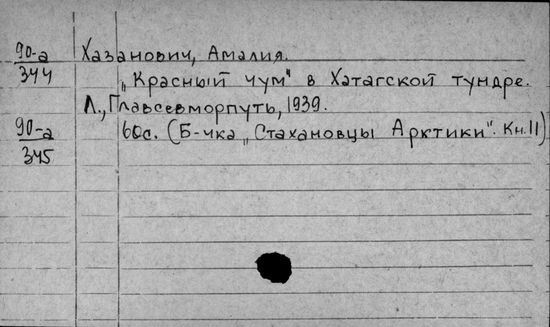 90-а Хазанович, Амалия.
344 „Красный чум" в Хатагской тундре.
Л., Главсевморпуть, 1939.
90-а 60с. (Б-чка „Стахановцы Арктики". Кн.11)
345